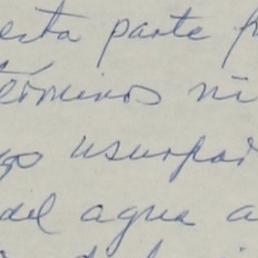 esta parte
términos ni
usurpar
del agua a